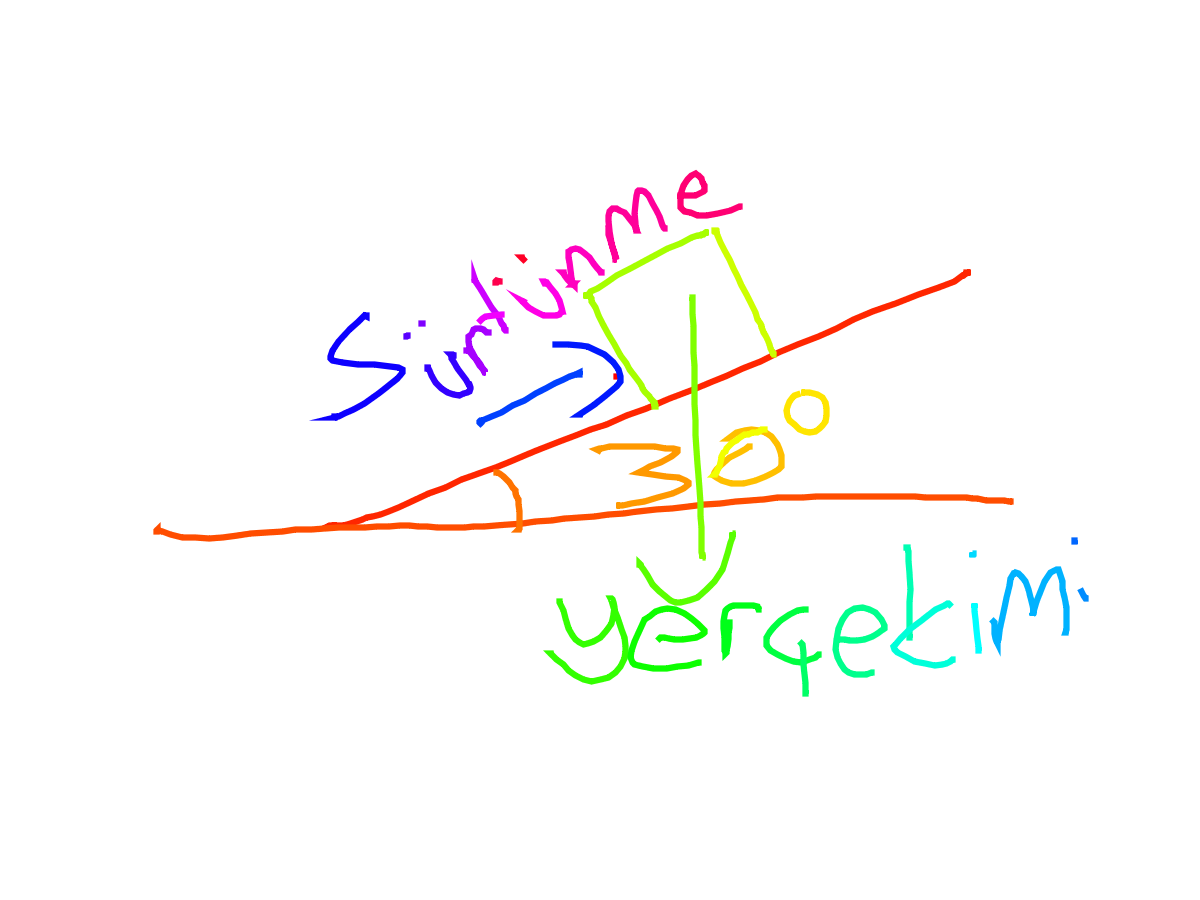 Sürtünme
30°
yerçekimi